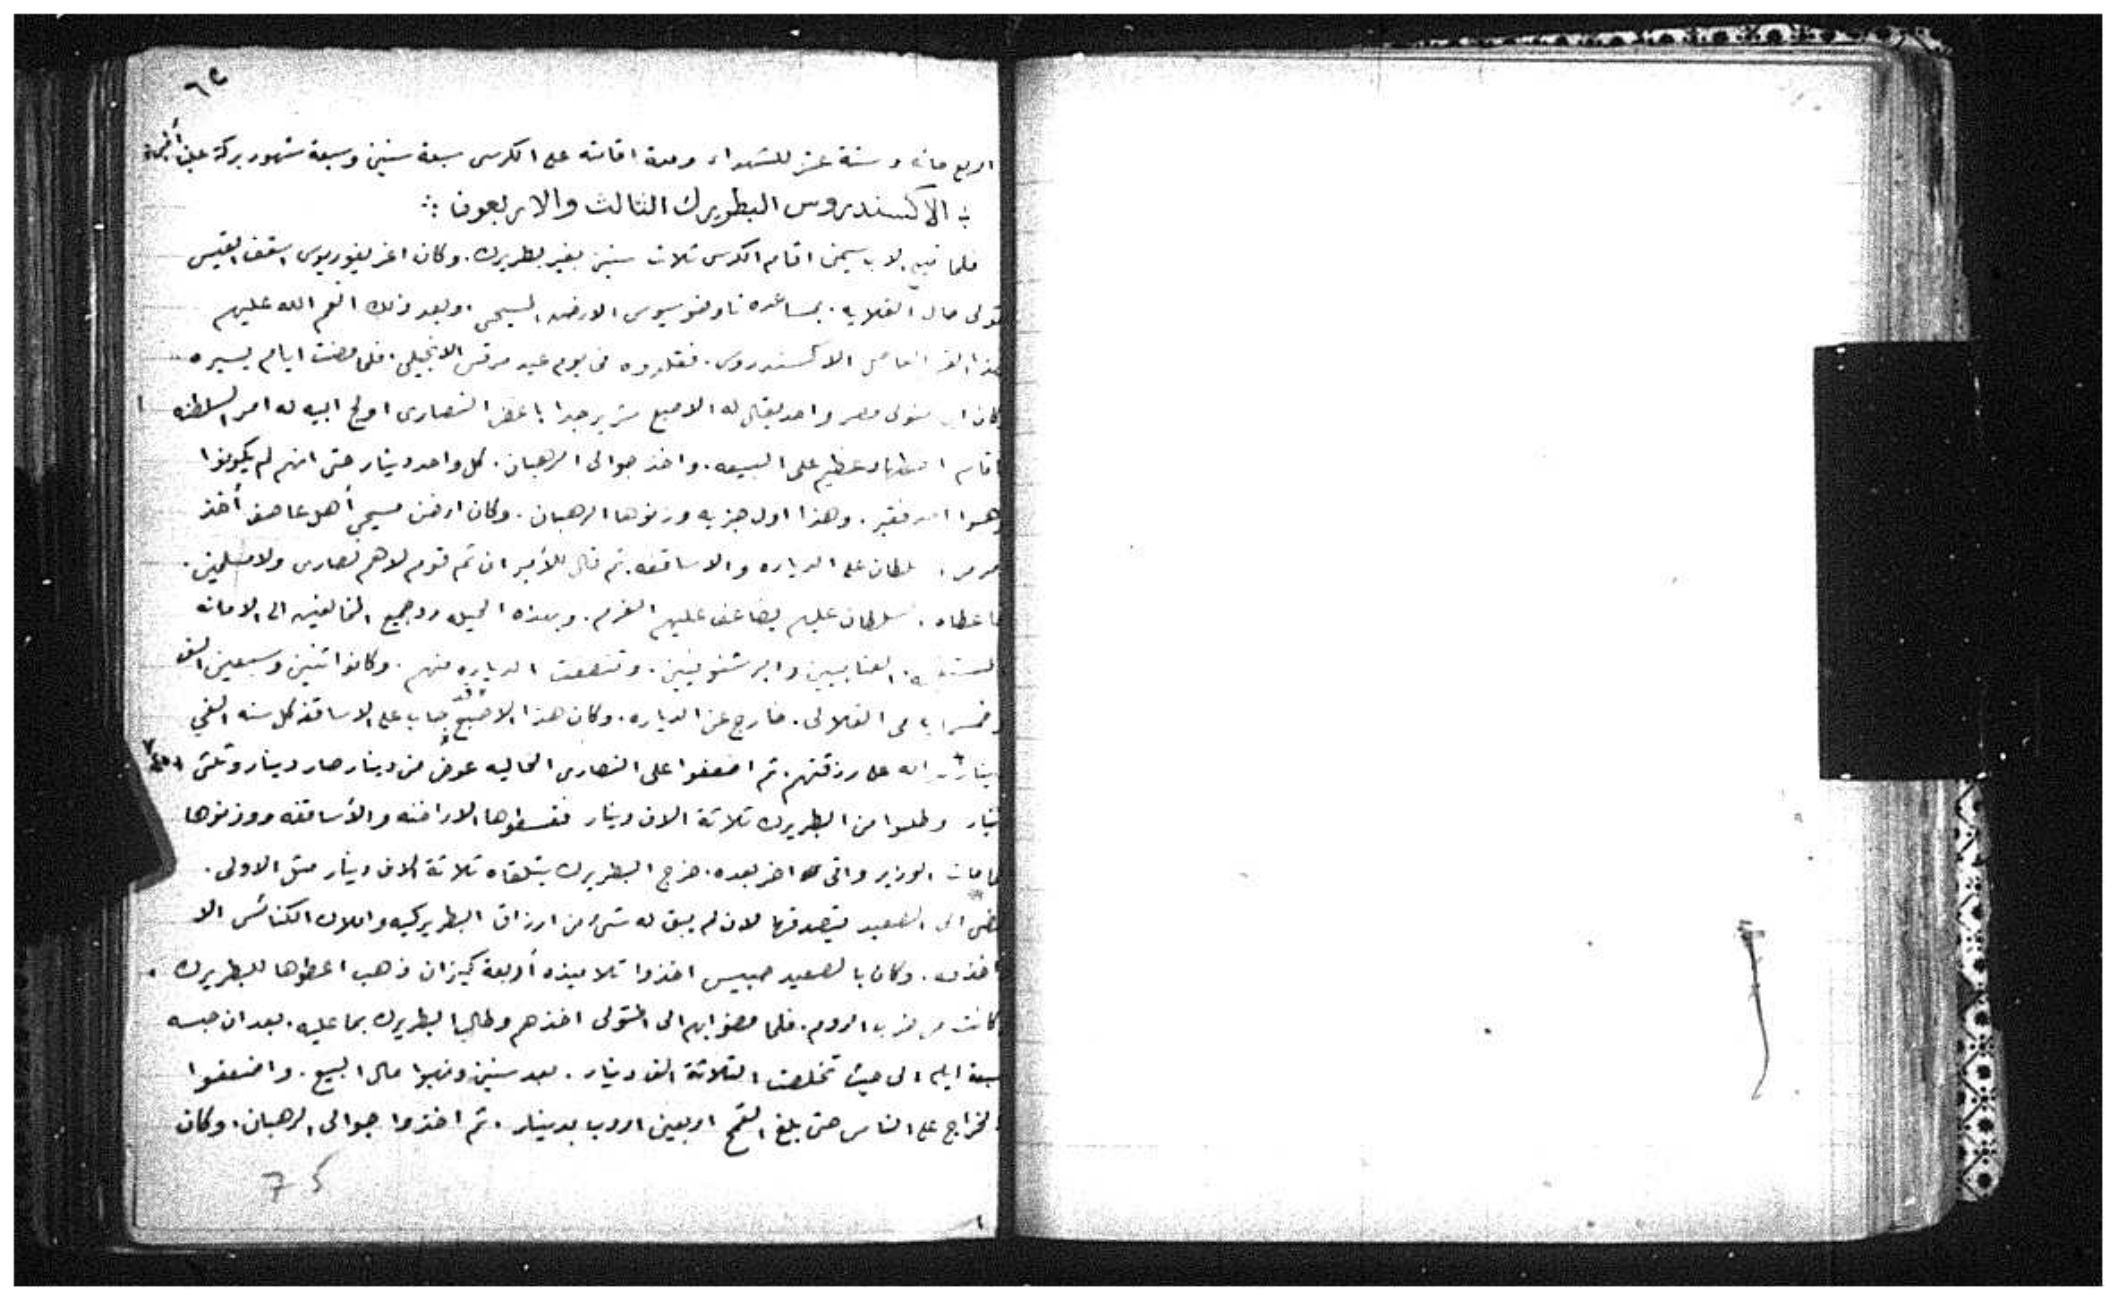 ٦٢
اربع مائه وستة عشر للشهداء ومدة اقامته على الكرسى سبعة سنين وسبعة شهور بركة علينا أمين
الاكسندروس البطريرك الثالث والاربعون
فلما تنيح الاب سيمن اقام الكرسى ثلاث سنين بغير بطريرك. وكان اغريغوريوس اسقف القيس
متولى حال القلايه. بمساعدة تاوضوسيوس الارخن المسيحى. وبعد ذلك انعم الله عليهم
بهذا الاب الفاضل الاكسندروس. فقلدوه فى يوم عيد مرقس الانجيلى. فلما مضت ايام يسيره
كان ابن متولى مصر واحد يقال له الاصبع شرير جدا باغض النصارى اولج ابيه له امر السلطنه
فاقام اضطهاد عظيم على البيعه. واخذ جوالى الرهبان. كل واحد دينار حتى انهم لم يكونوا
امد فقير. وهذا اول جزيه وزنوها الرهبان. وكان ارخن مسيحى أهل عاصف أخذ
سلطان على الدياره والاساقفه. ثم قال للأمير ان ثم قوم لا هم نصارى ولا مسلمين.
فاعطاه سلطان عليهم يضاعف عليهم الغرم. وبهذه الحيله رد جميع المخالفين الى الامانه
الغنابيين والبرشنوفيين. وتنصعت الدياره منهم. وكانوا اثنين وسبعين الف
القلالى. خارج عن الدياره. وكان هذا الاصبع قد جاب على الاساقفه كل سنه الفى
دينار على رزقتهم. ثم اضعفوا على النصارى الجاليه عوض من دينار صار دينار وثلثى
دينار وطلبوا من البطريرك ثلاثة الاف دينار فقسطوها الاراخنه والأساقفه ووزنوها
فلما مات الوزير واتى اخر بعده. خرج البطريرك يتلقاه ثلاثة الاف دينار مثل الاولى.
فمضى الى الصعيد يتصدقها لان لم يبق له شئ من ارزاق البطريركيه واملاك الكنائس الا
واخذوه. وكان بالصعيد حبيس اخذوا تلاميذه أربعة كيزان ذهب اعطوها للبطريرك
وكانت من ضرب الروم. فلما مضوا بهم الى المتولى اخذهم وطالب البطريرك بما عليه. بعد ان حبسه
سبعة ايام الى حيث تخلصت الثلاثة الف دينار. بعد سنين ونهبوا مال البيع. واضعفوا
الخراج على الناس حتى بلغ القمح اربعين اردب بدينار. ثم اخذوا جوالى الرهبان. وكان
75